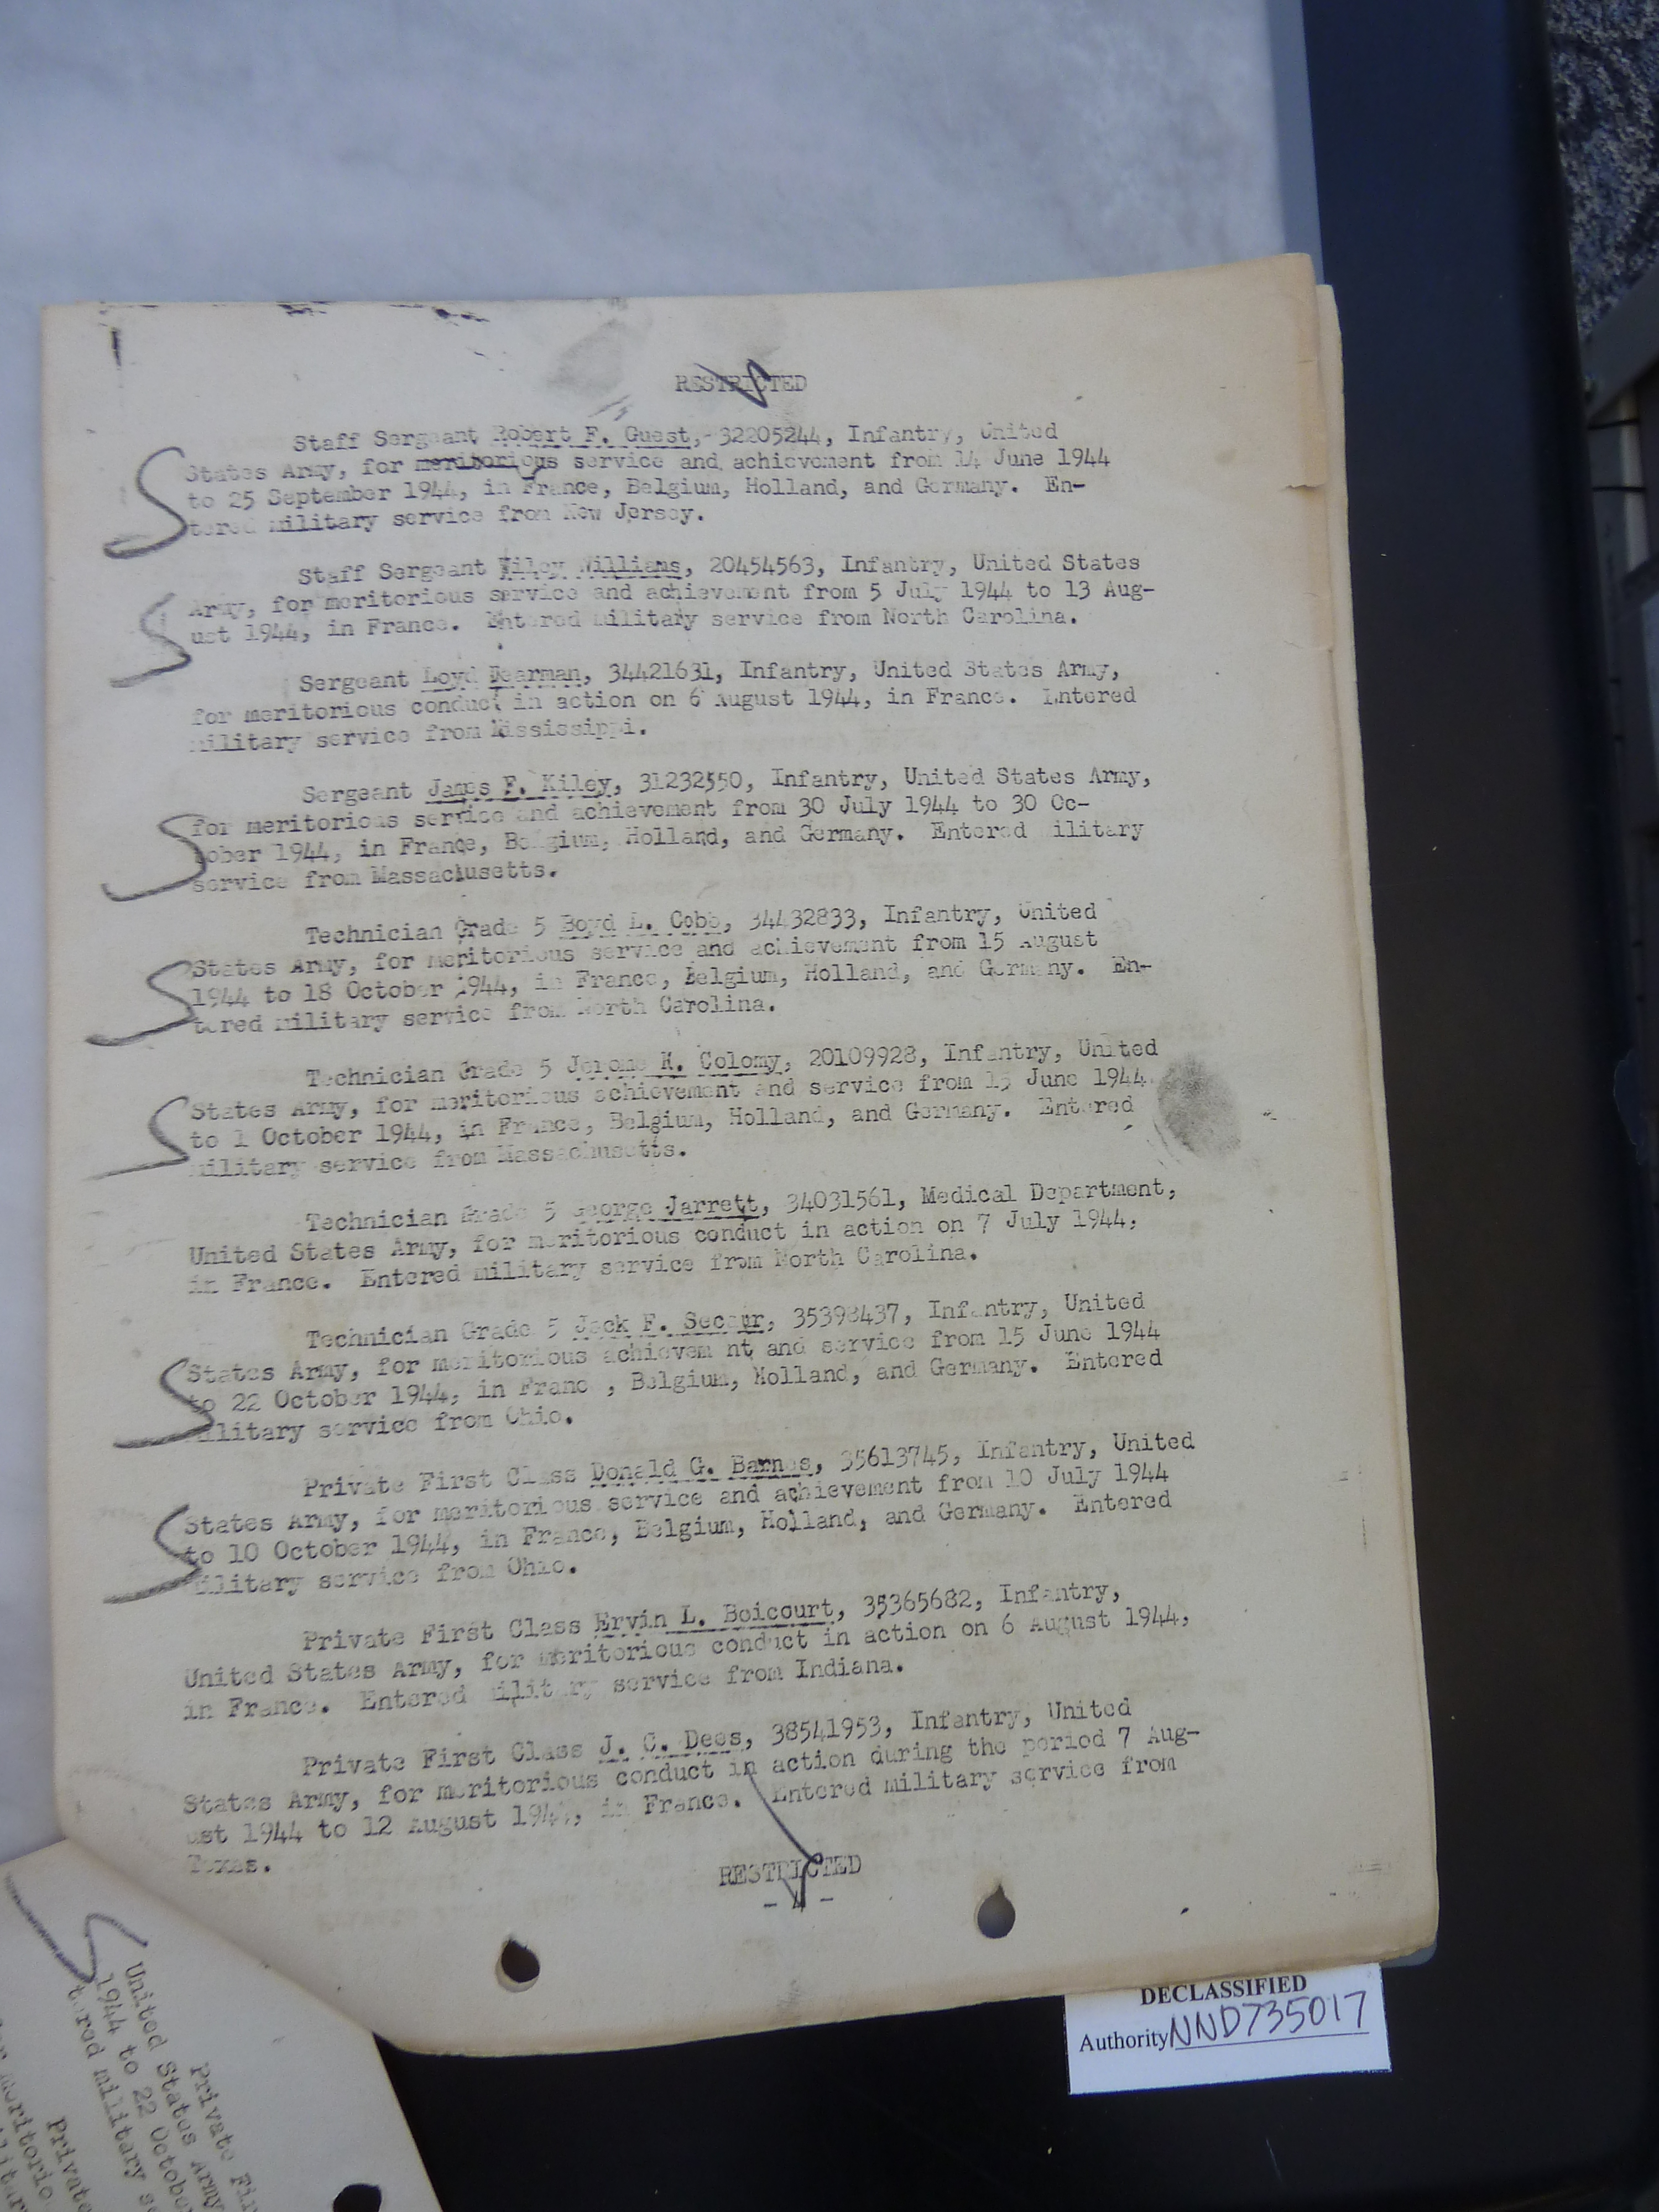 RESTRICTED
Staff Sergeant Robert F. Guest, 32205244, Infantry, United
States Army, for meritorious service and achievement from 14 June 1944
to 25 September 1944, in France, Belgium, Holland, and Germany. En-
tered military service from New Jersey.
Staff Sergeant Wiley Williams, 20454563, Infantry, United States
Army, for meritorious service and achievement from 5 July 1944 to 13 Aug-
ust 1944, in France. Entered military service from North Carolina.
Sergeant Loyd Dearman, 34421631, Infantry, United States Army,
for meritorious conduct in action on 6 August 1944, in France. Entered
military service from Mississippi.
Sergeant James F. Kiley, 31232550, Infantry, United States Army,
for meritorious service and achievement from 30 July 1944 to 30 Oc-
tober 1944, in France, Belgium, Holland, and Germany. Entered ilitary
service from Massachusetts.
Technician Grade 5 Boyd L. Cobb, 34432833, Infantry, United
States Army, for meritorious service and achievement from 15 August
1944 to 18 October 1944, in France, Belgium, Holland, and Germany. En-
tered military service from North Carolina.
Technician Grade 5 Jerome K. Colomy, 20109928, Infantry, United
States Army, for meritorious achievement and service from 15 June 1944
to 1 October 1944, in France, Belgium, Holland, and Germany. Entered
military service from Massachusetts.
Technician Grade 5 George Jarrett, 34031561, Medical Department,
United States Army, for meritorious conduct in action on 7 July 1944,
in France. Entered military service from North Carolina.
Technician Grade 5 Jack F. Secaur, 35398437, Infantry, United
States Army, for meritorious achievem nt and service from 15 June 1944
to 22 October 1944, in Franc , Belgium, Holland, and Germany. Entered
military service from Ohio.
Private First Class Donald G. Barnes, 35613745, Infantry, United
States Army, for meritorious service and achievement from 10 July 1944
to 10 October 1944, in France, Belgium, Holland, and Germany. Entered
military service from Ohio.
Private First Class Ervin L. Boicourt, 35365682, Infantry,
United States Army, for meritorious conduct in action on 6 August 1944,
in France. Entered military service from Indiana.
Private First Class J. C. Dees, 38541953, Infantry, United
States Army, for meritorious conduct in action during the period 7 Aug-
ust 1944 to 12 August 1944, in France. Entered military service from
Texas.
RESTRICTED
- 4 -
DECLASSIFIED
Authority NND735017
Private Fir
United States Army
1944 to 22 Octobe
tered military se
Private